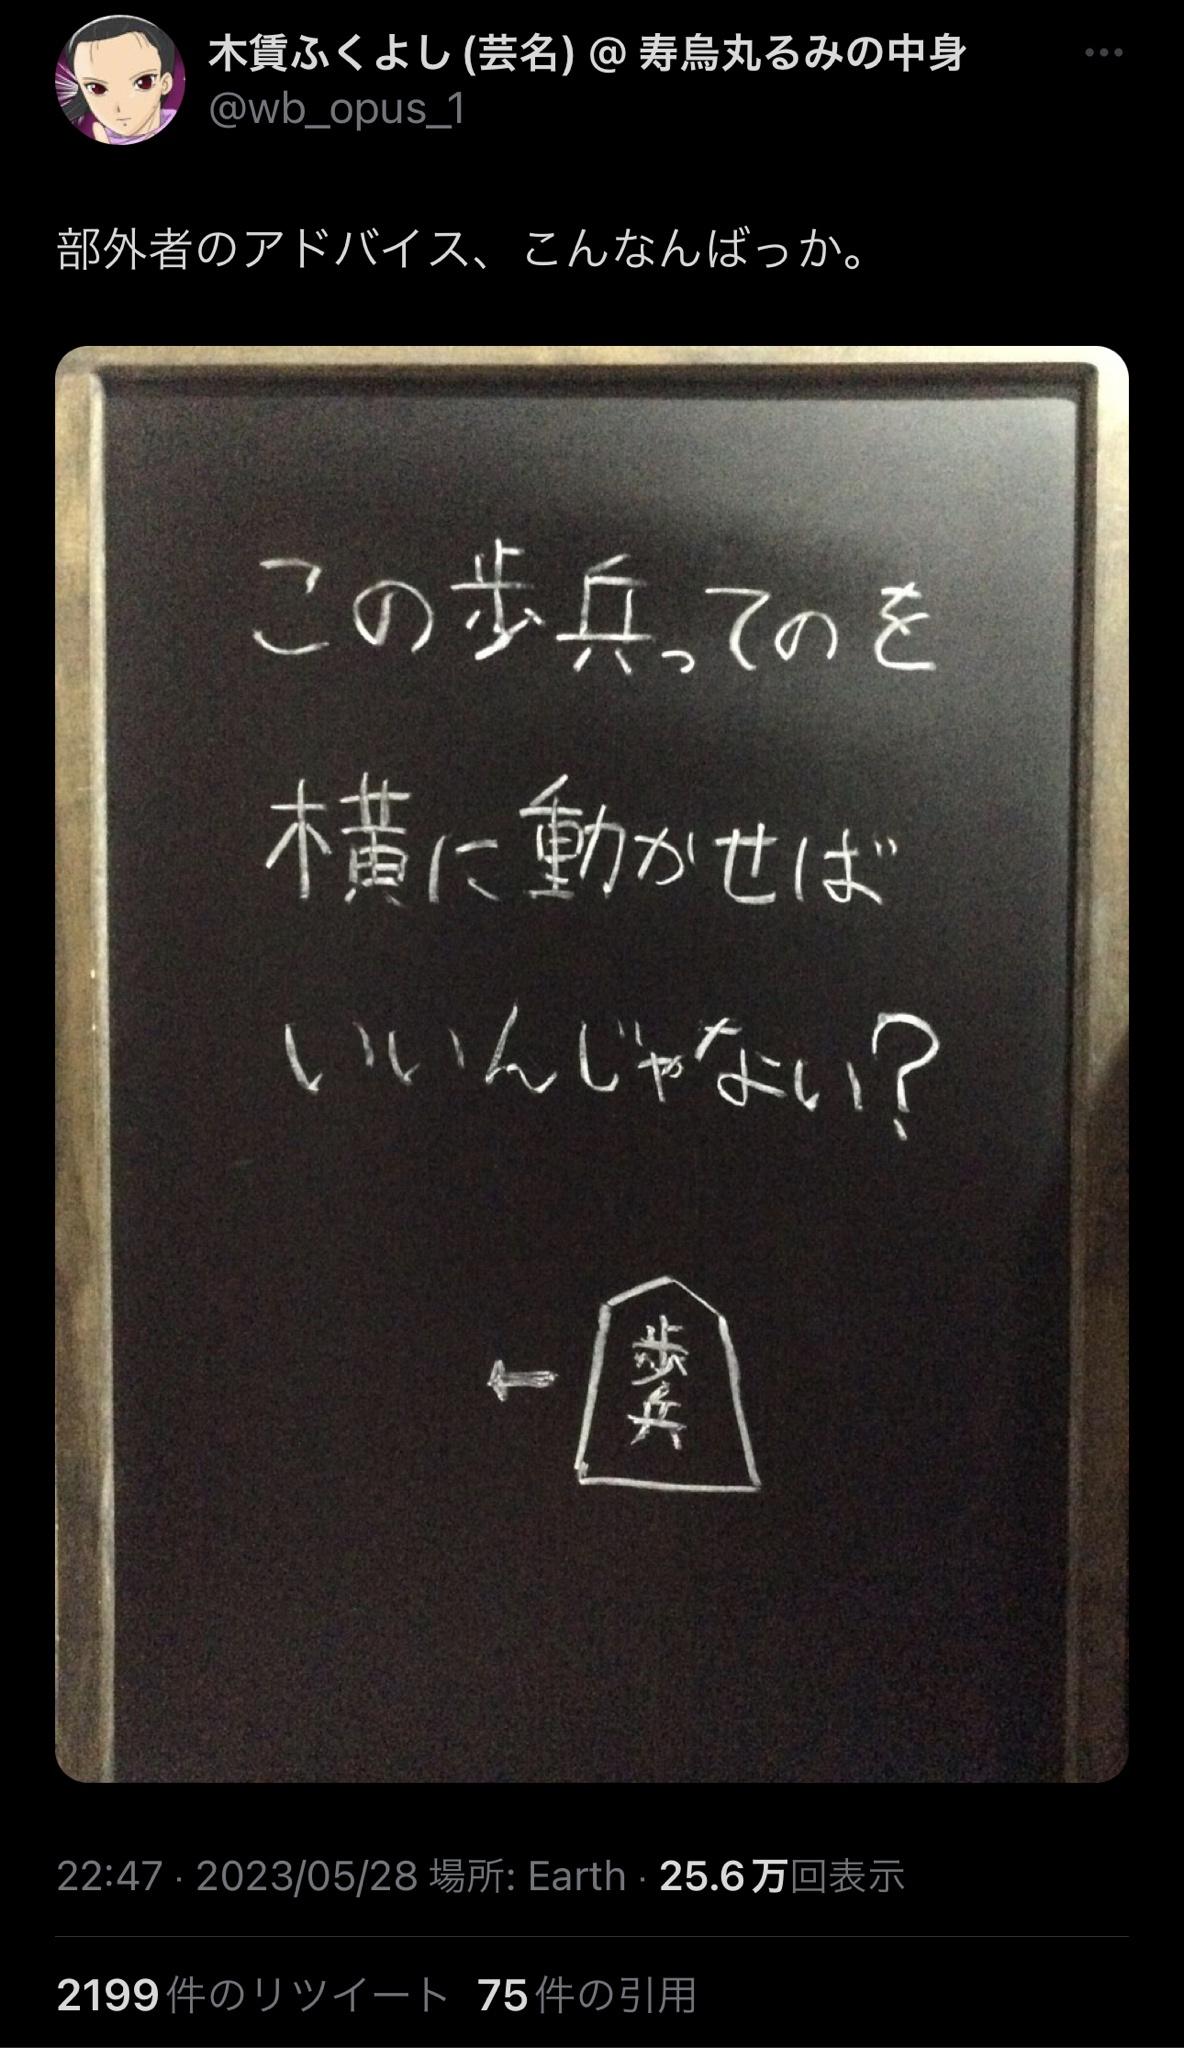 木賃ふくよし(芸名)@寿烏丸るみの中身
@wb_opus_1
部外者のアドバイス、こんなんばっか。
この歩兵ってのを
横に動かせば
いいんじゃない?
歩兵
22:47 · 2023/05/28 場所: Earth · 25.6万回表示
2199件のリツイート 75件の引用